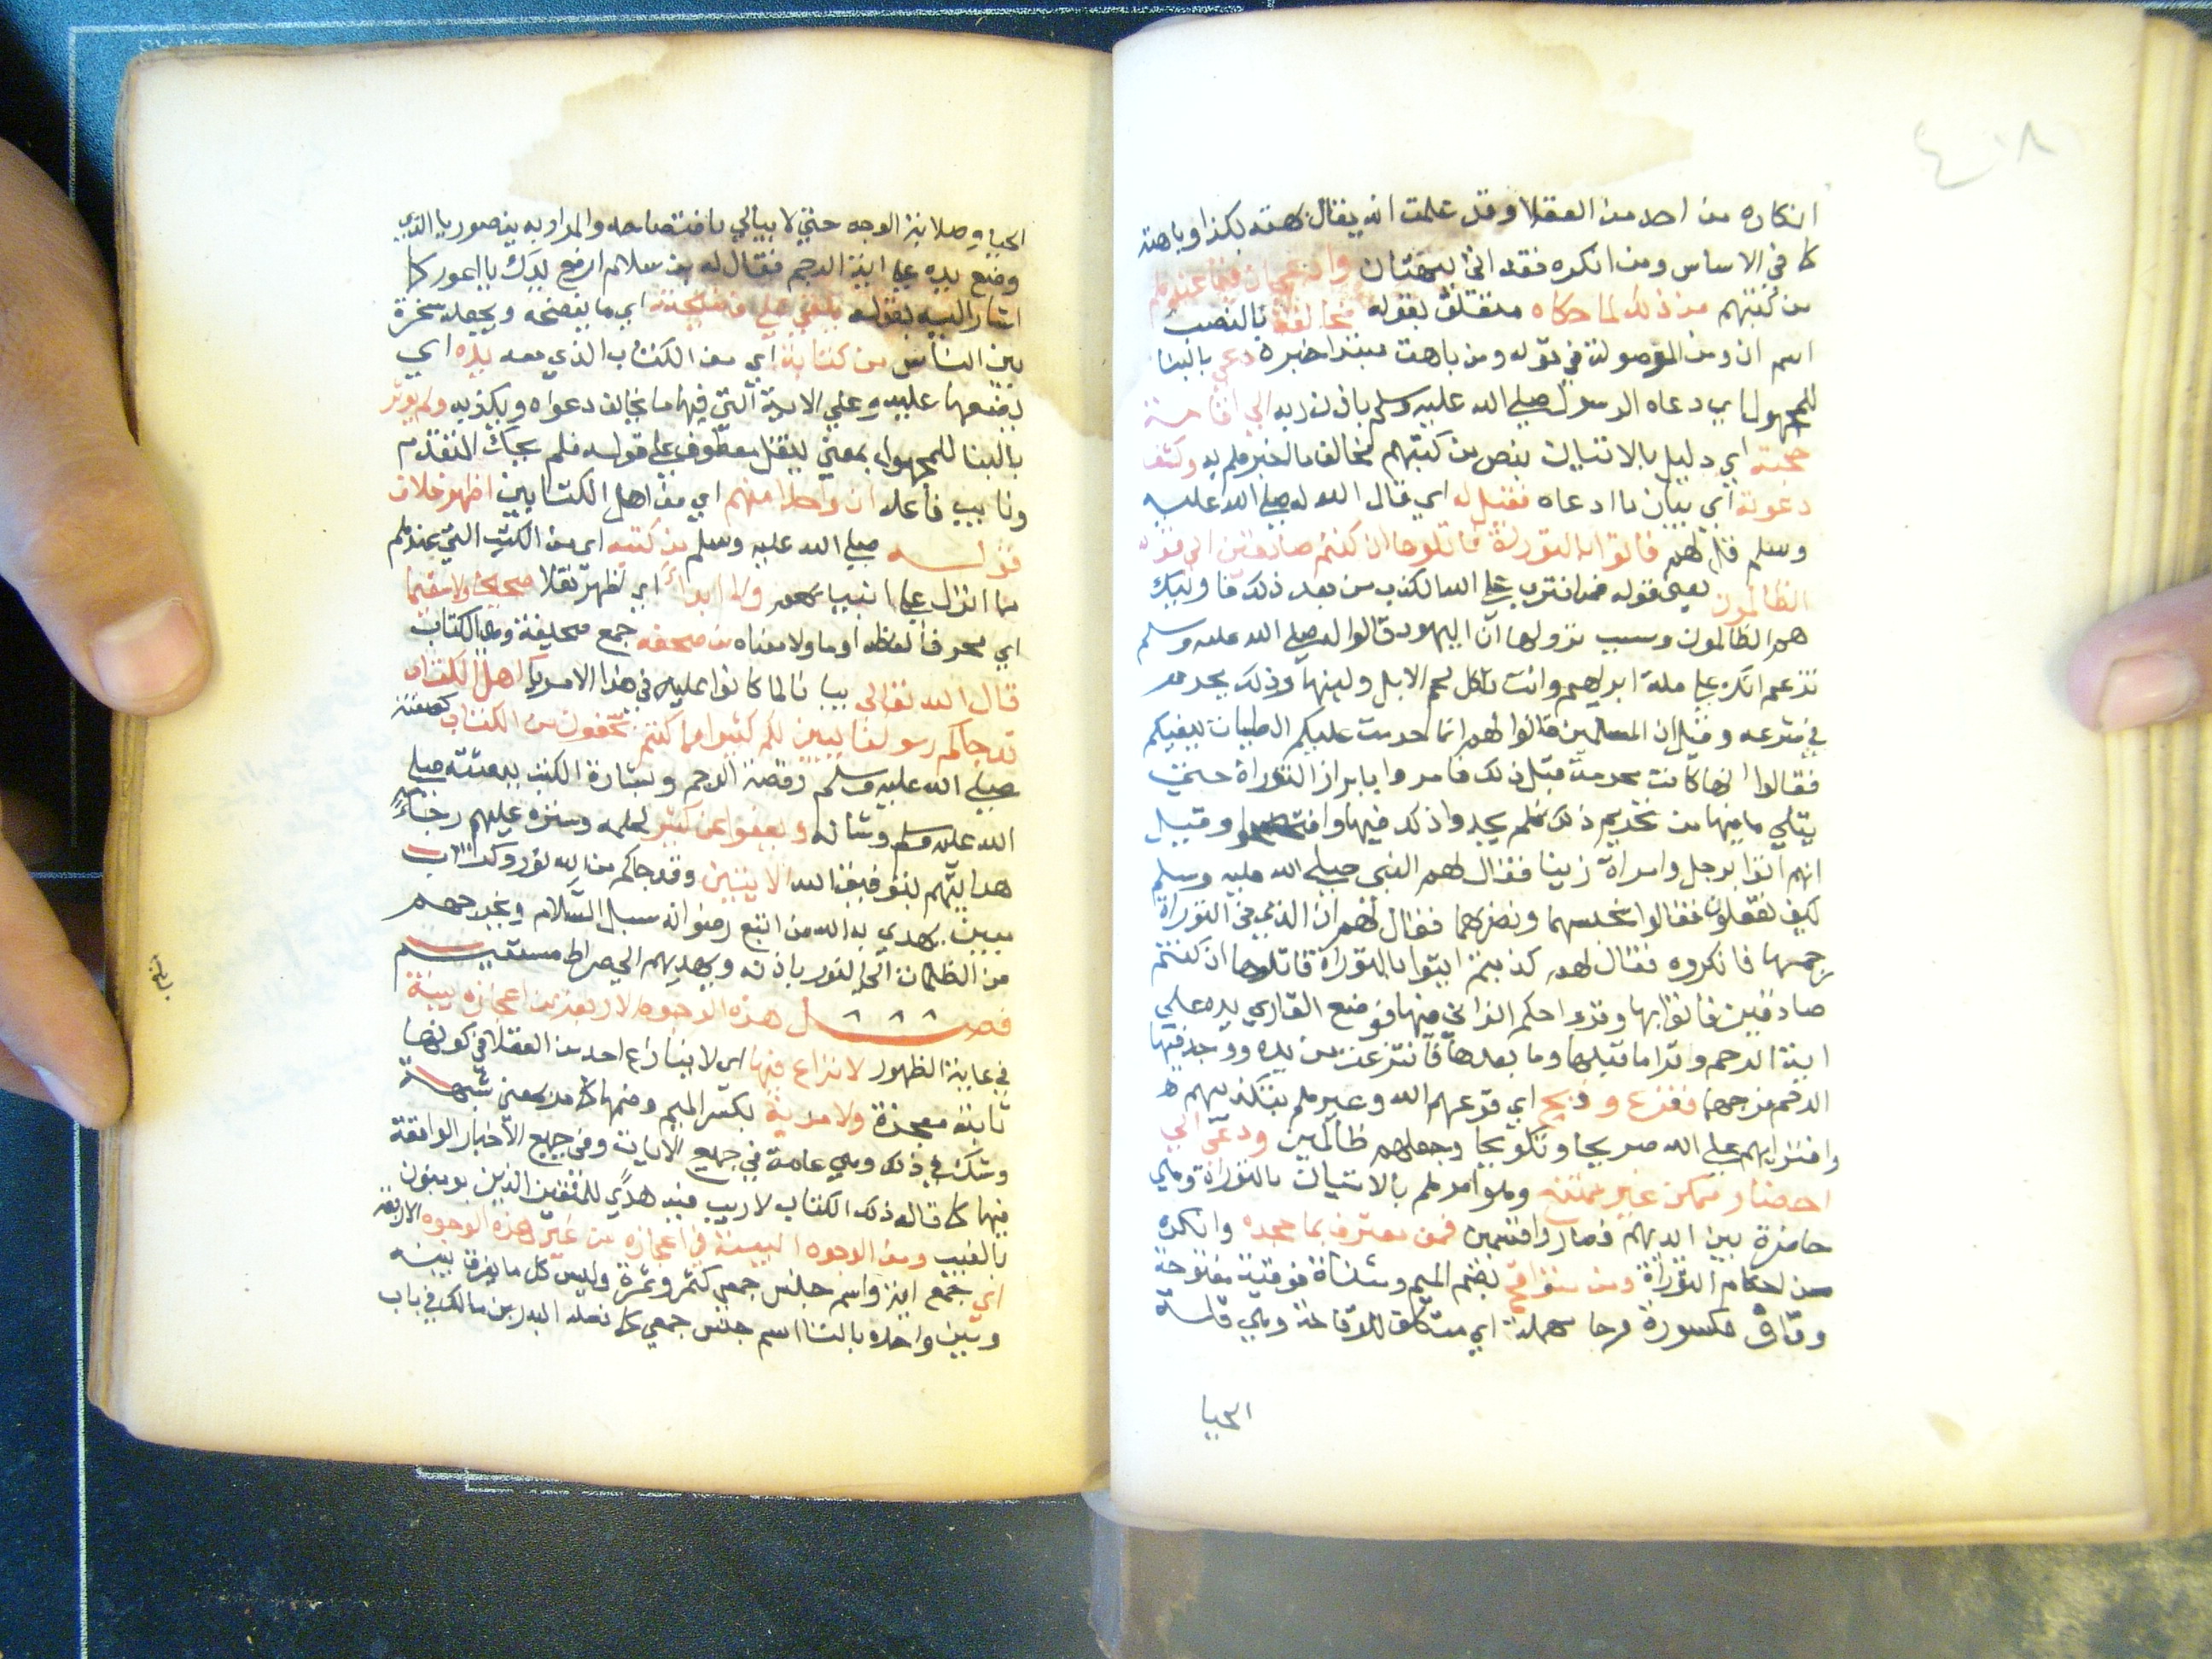 ٤٠٨
انكاره من احد من العقلا وقد علمت انه يقال بهته بكذا وباهته
كما في الاساس ومن انكره فقد اتى ببهتان وان عيان فيما عندهم
من كتبهم من ذلك لما حكاه متعلق بقوله مخالفة بالنصب
اسم ان ومن الموصولة في قوله ومن باهت مبتدا خبره دعي بالبنا
للمجهول اي دعاه الرسول صلى الله عليه وسلم باذن ربه الي اقامة
حجته اي دليل بالاتيان بنص من كتبهم يخالف ما اخبرهم به وكشف
دعوته اي بيان ما ادعاه فقيل له اي قال الله له صلى الله عليه
وسلم قل لهم فاتوا بالتوراة فاتلوها ان كنتم صادقين الى قوله
الظالمون يعني قوله فمن افترى على الله الكذب من بعد ذلك فاوليك
هم الظالمون وسبب نزولها ان اليهود قالوا له صلى الله عليه وسلم
تزعم انك على ملة ابراهيم وانت تاكل لحم الابل ولبنها وذلك محرم
في شرعه وقيل ان المسلمين قالوا لهم انما حرمت عليكم الطيبات ببغيكم
فقالوا انها كانت محرمة قبل ذلك فامروا بابراز التوراة حتى
يتلي ما فيها من تحريم ذلك فلم يجدوا ذلك فيها وافتضحوا وقيل
انهم اتوا برجل وامراة زنيا فقال لهم النبي صلى الله عليه وسلم
كيف تفعلون فقالوا نحمهما ونضربهما فقال لهم ان الذي في التوراة
رجمها فانكروه فقال لهم كذبتم ايتوا بالتوراة فاتلوها ان كنتم
صادقين فاتوا بها وقرءا حكم الزاني فيها فوضع القاري يده على
اية الرجم وقرا ما قبلها وما بعدها فانتزعت من يده ووجد فيها
الرجم فرجمها ففزع و وبخ اي قرعهم الله وعيرهم بتكذيبهم
وافترايهم على الله صريحا وتلويحا وجعلهم ظالمين ودعي الي
احضار ممكن غير ممتنع وهو امرهم بالاتيان بالتوراة وهي
حاضرة بين ايديهم فصاروا قسمين فمن معترف بما جحده وانكره
من احكام التوراة ومن متواقح بضم الميم ومثناة فوقية مفتوحة
وقاف مكسورة وحا مهملة اي متكلف للوقاحة وهي قلة
الحيا
الحيا وصلابة الوجه حتى لا يبالي بافتضاحه والمراد به بن صوريا الذي
وضع يده على اية الرجم فقال له بن سلام ارفع يدك يا اعور كما
اشار اليه بقوله يلقي على فضيحته اي ما يفضحه ويجعله سخرة
بين الناس من كتابه اي من الكتاب الذي معه يده اي
يضعها عليه وعلى الاية التي فيها ما يخالف دعواه ويكذبه ولم يوثر
بالبنا للمجهول بمعنى ينقل معطوف على قوله فلم يحك المتقدم
ونايب فاعله ان واحدا منهم اي من اهل الكتابين اظهر خلاف
قوله صلى الله عليه وسلم من كتبه اي من الكتب التي عندهم
مما انزل على انبيايهم ولا ابداء اي ظهر نقلا صحيحا ولا سقيما
اي محرفا لفظه او ماولا معناه من صحفه جمع صحيفة وهي الكتاب
قال الله تعالى بيانا لما كانوا عليه في هذا الامر يا اهل الكتاب
قد جاكم رسولنا يبين لكم كثيرا مما كنتم تخفون من الكتاب كصفته
صلى الله عليه وسلم وقصة الرجم وبشارة الكتب ببعثته صلى
الله عليه وسلم وشانه ويعفوا عن كثير لحلمه وستره عليهم رجاء
هدايتهم بتوفيق الله الايتين وقد جاكم من الله نور وكتاب
مبين يهدي به الله من اتبع رضوانه سبل السلام ويخرجهم
من الظلمات الى النور باذنه ويهديهم الي صراط مستقيم
فصل هذه الوجوه الاربعة من اعجازه بينة
في غاية الظهور لا نزاع فيها اي لا ينازع احد من العقلا في كونها
ثابتة معجزة ولا مرية بكسر الميم وضمها كما مر بمعنى شبهة
وشك في ذلك وهي عامة في جميع الايات وفي جميع الاخبار الواقعة
فيها كما قاله ذلك الكتاب لا ريب فيه هدى للمتقين الذين يومنون
بالغيب ومن الوجوه البينة في اعجازه من غير هذه الوجوه الاربعة
اي جمع اية واسم جنس جمعي كتمر وتمرة وليس كل ما يفرق بينه
وبين واحده بالتا اسم جنس جمعي كما نقله البدر بن مالك في باب